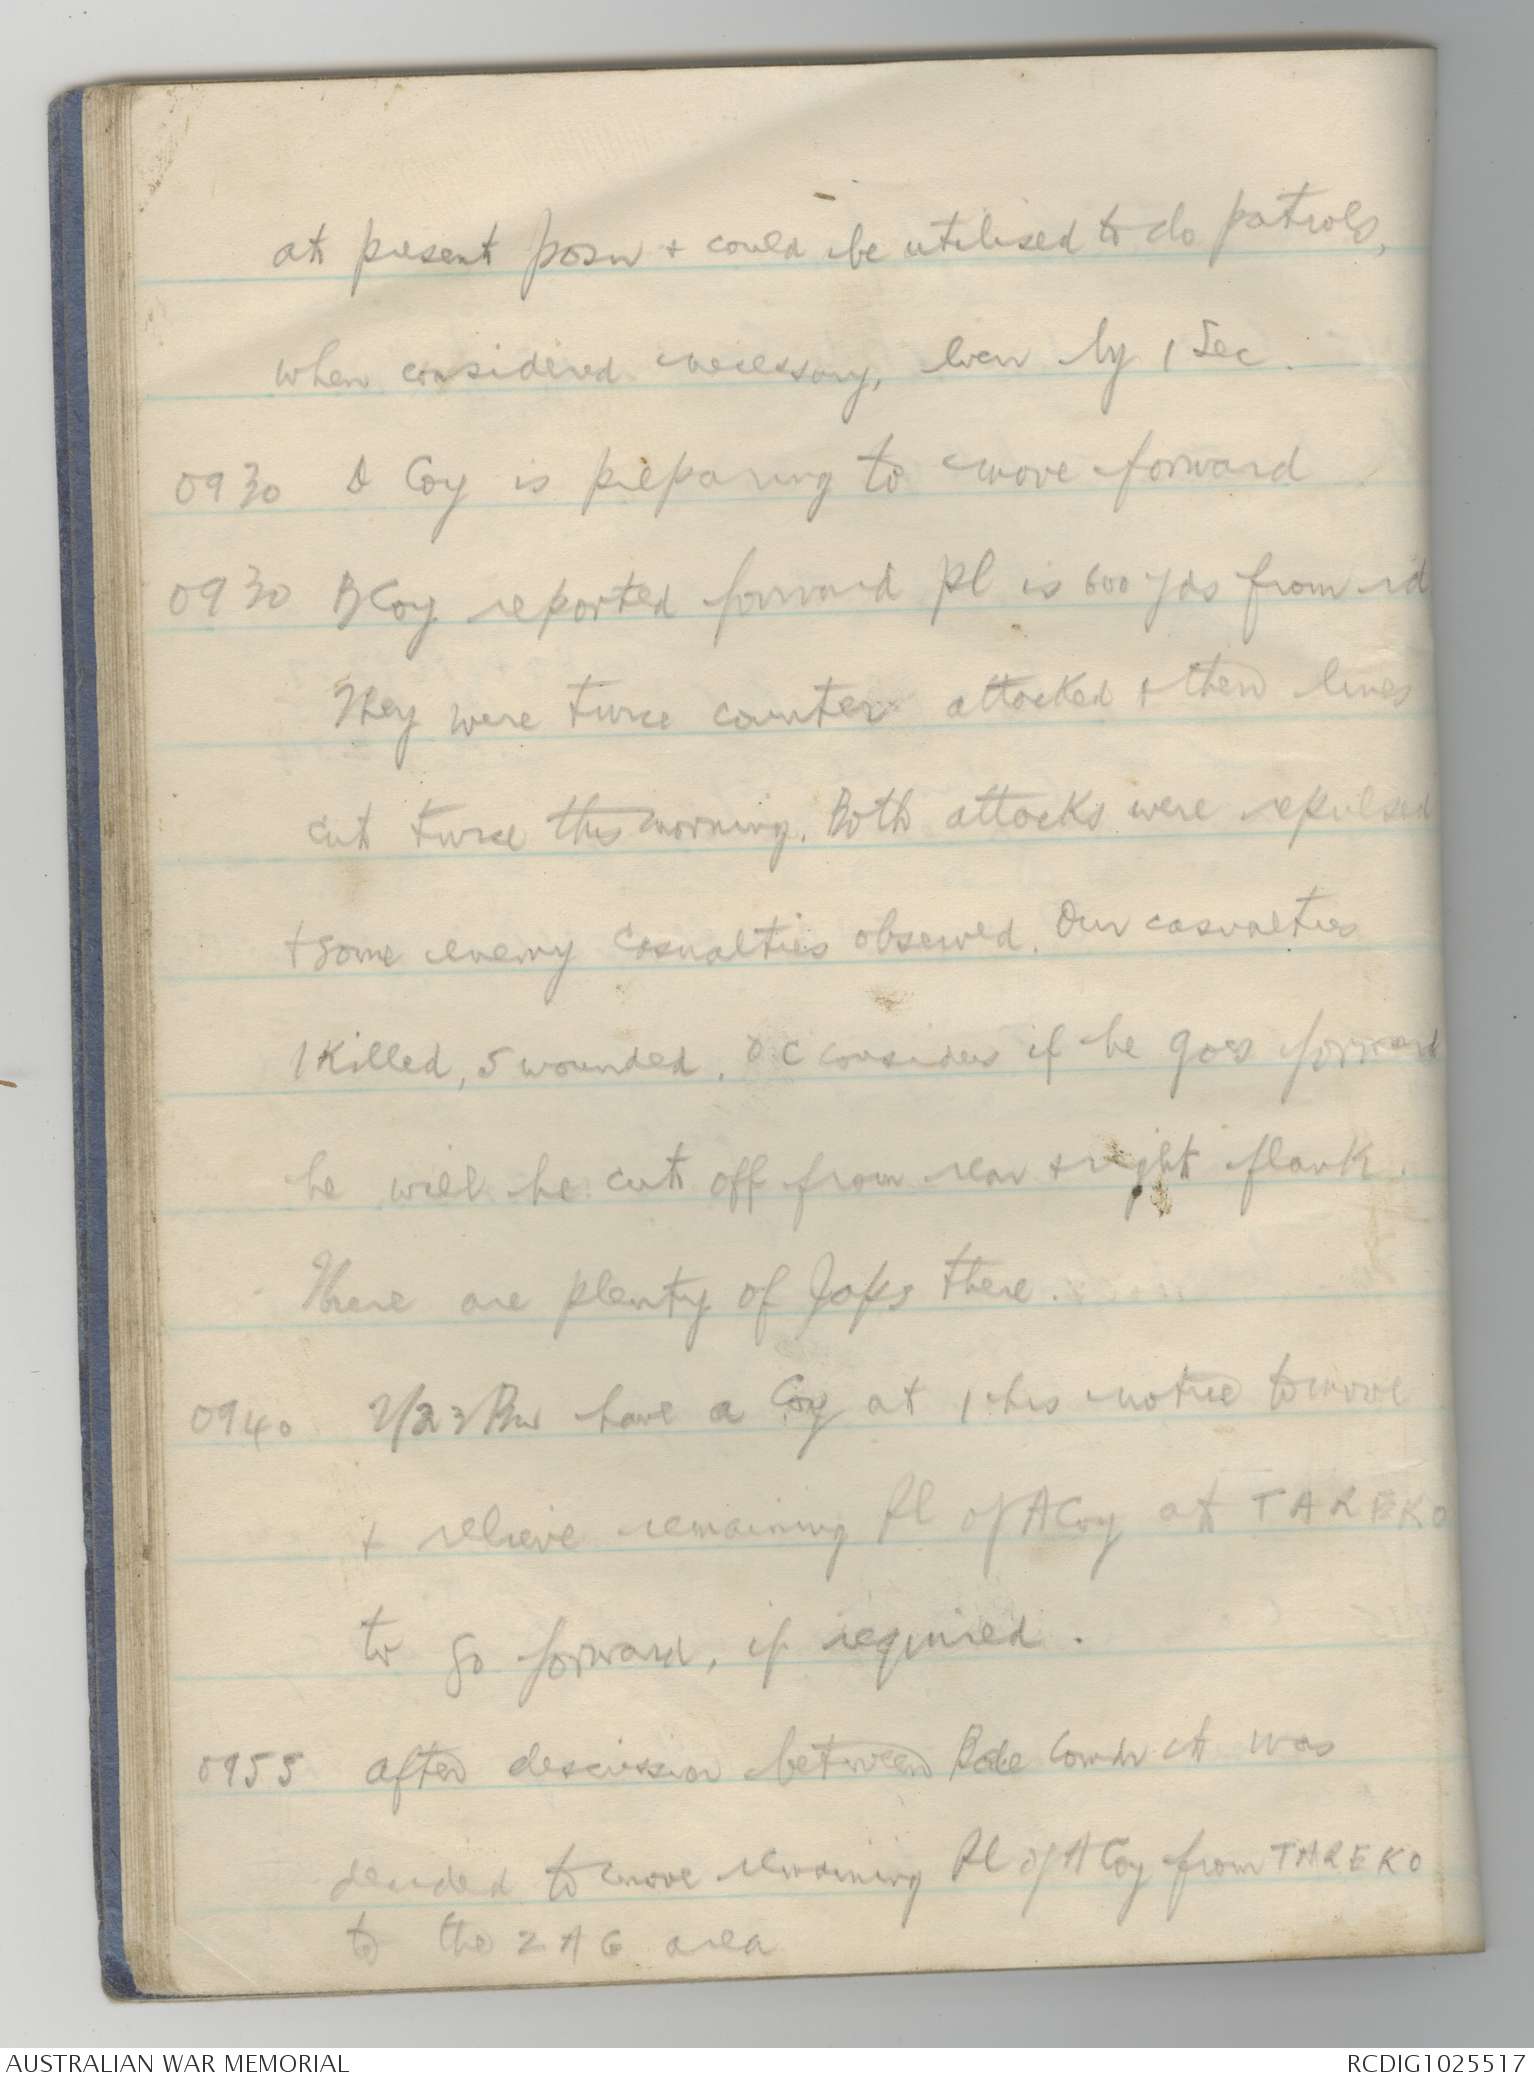 at present posn + could be utilised to do patrols,
when considered necessary, even by 1 Sec.
0930 D Coy is preparing to move forward.
0930 B Coy reported forward Pl is 600 yds from rd
They were twice counter attacked + their lines
cut twice this morning. Both attacks were repulsed
+ some enemy casualties observed. Our casualties
1 Killed, 5 wounded. O C considers if he goes forward
he will be cut off from rear + right flank.
There are plenty of Japs there.
0940 2/23 Bn have a Coy at 1 hrs notice to move
+ relieve remaining Pl of A Coy at TAREKO
to go forward, if required.
0955 after descussion between Bde Comdr it was
decided to move remaining Pl of A Coy from TAREKO
to the ZAG area
AUSTRALIAN WAR MEMORIAL
RCDIG1025517